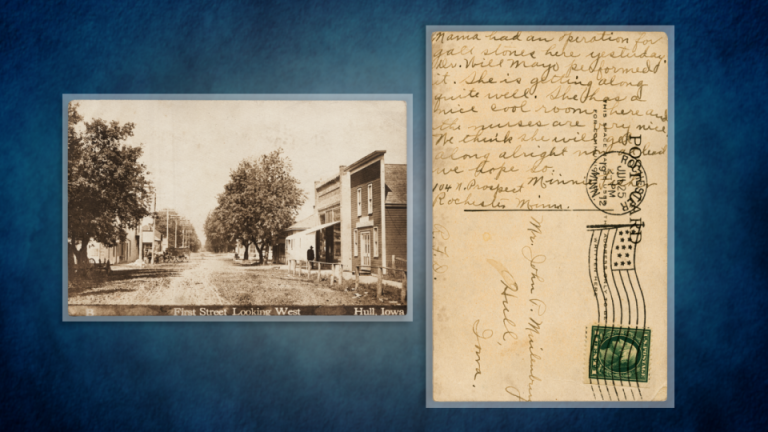 First Street Looking West
Hull, Iowa
Mama had an operation for
gall stones here yesterday.
Dr. Will Mayo performed
it. She is getting along
quite well. She has a
nice cool room here and
the nurses are very nice
We think she will get
along alright now at least
we hope so.
104 N. Prospect
Rochester Minn.
POST CARD
THIS SPACE
JUN 25
1912
MINN
Mr. John P.
Hull,
Iowa.